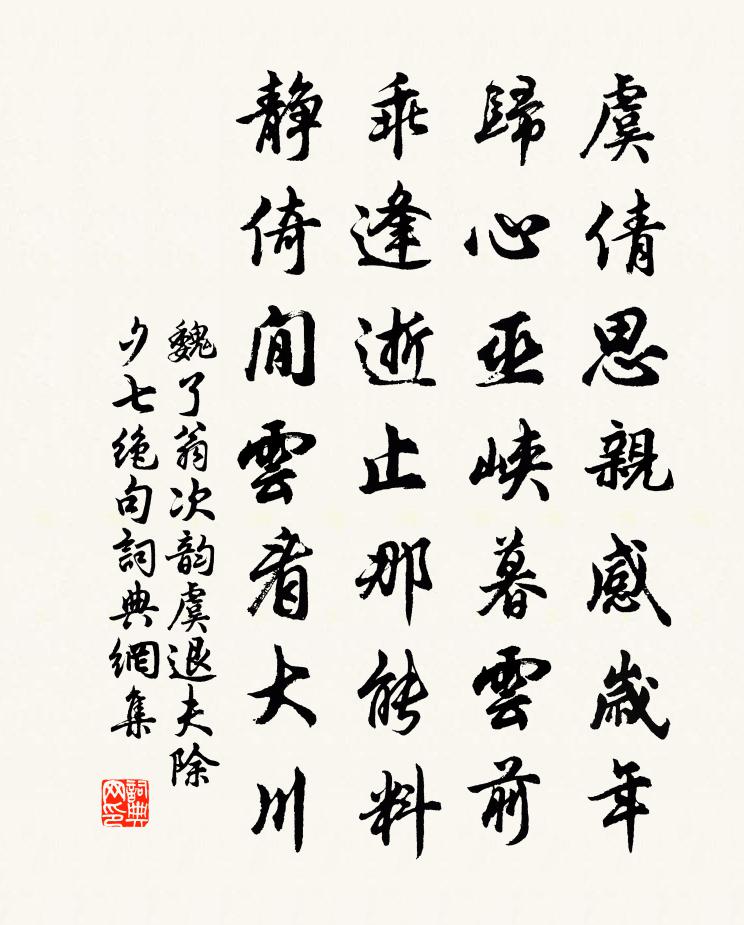 虞倩思親感歲年
歸心巫峽暮雲前
乖逢逝止那能料
靜倚閒雲看大川
魏了翁次韵虞退夫除
夕七絶句詞典網集
詞典網印